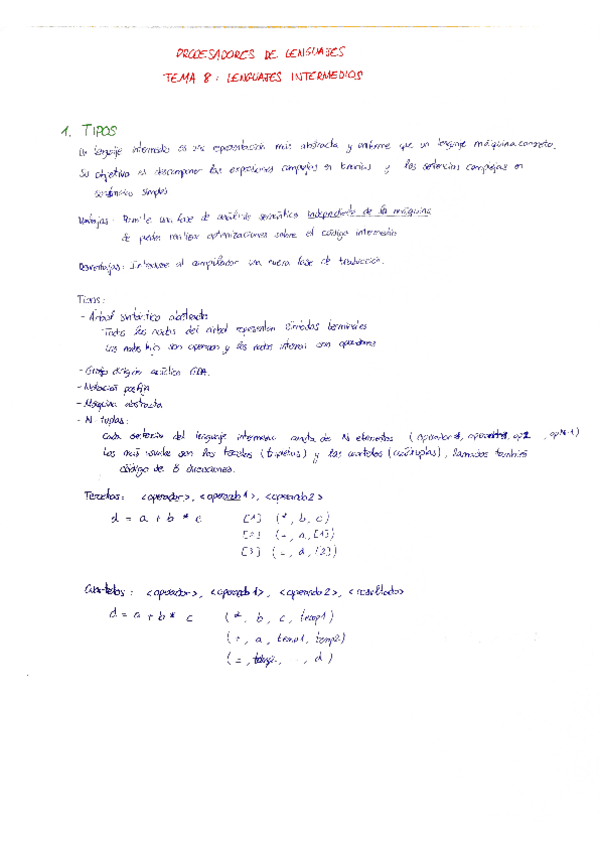 PROCESADORES DE LENGUAJES
TEMA 8: LENGUAJES INTERMEDIOS
1. TIPOS
Un lenguaje intermedio es una representación más abstracta y uniforme que un lenguaje máquina concreto.
Su objetivo es descomponer las expresiones complejas en binarias y las sentencias complejas en
sentencias simples
Ventajas: Permite una fase de análisis semántico independiente de la máquina
Se pueden realizar optimizaciones sobre el código intermedio
Desventajas: Introduce al compilador una nueva fase de traducción.
Tipos:
- Árbol sintáctico abstracto
Todos los nodos del árbol representan símbolos terminales
Los nodos hijo son operandos y los nodos internos son operadores
- Grafo dirigido acíclico GDA.
- Notación posfija
- Máquina abstracta
- N-tuplas:
Cada sentencia del lenguaje intermedio consta de N elementos (operador, op2, opN-1)
Las más usuales son los tercetos (tripletas) y los cuartetos (cuádruplas), llamados también
código de 3 direcciones.
Tercetos: <operador>, <operando1>, <operando2>
d = a + b * c [1] (*, b, c)
[2] ( , a, [1])
[3] (=, d, [2])
Cuartetos: <operador>, <operando1>, <operando2>, <resultado>
d = a + b * c (*, b, c, temp1)
(+, a, temp1, temp2)
(=, temp2, , d)